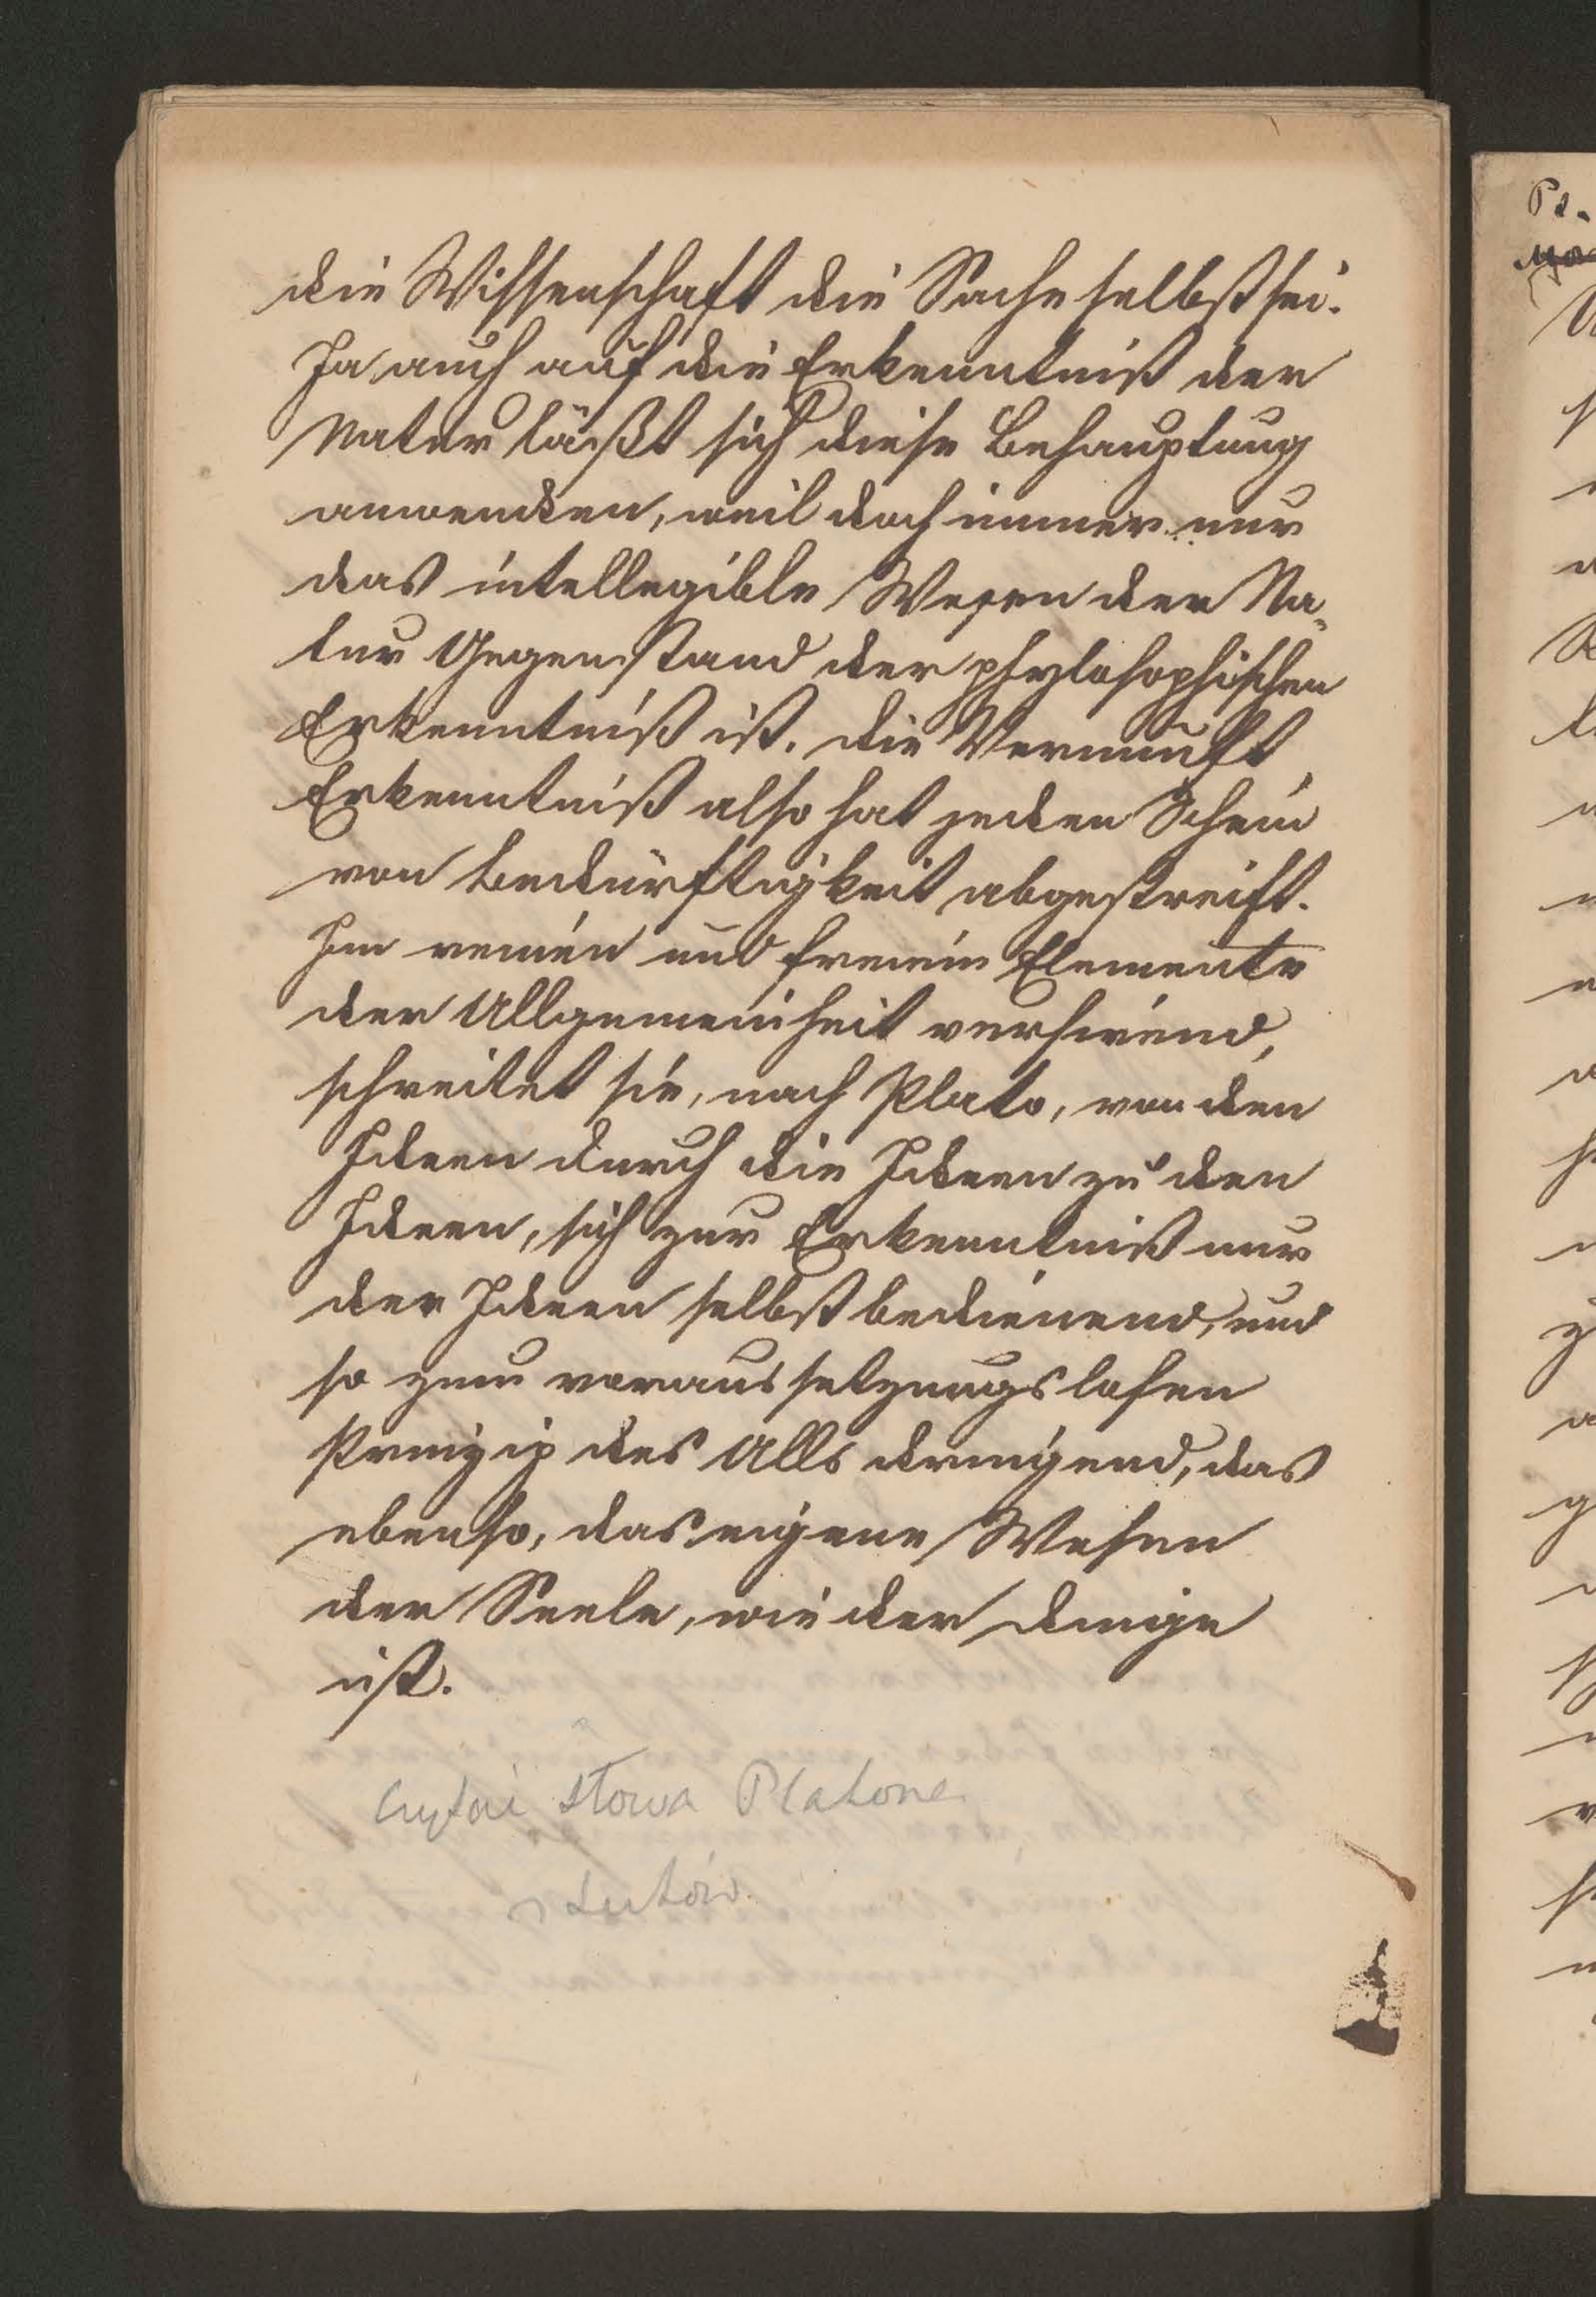 die Wissenschaft die Sache selbst sei.
Ja auch auf die Erkenntniß der
Natur läßt sich diese Behauptung
anwenden, weil doch immer nur
das intellegible Wesen der Na-
tur Gegenstand der phylosophischen
Erkenntniß ist. Die Vernunft
Erkenntniß also hat jeden Schein
von Bedürftigkeit abgestreift.
Im reinen und freiein Elemente
der Allgemeinheit verseiend,
schreitet sie, nach Plato, von den
Ideen durch die Ideen zu den
Ideen, sich zur Erkenntniß nur
der Ideen selbst bedienend, und
so zum voraussetzungslosen
Prinzip des Alls dringend, das
ebenso, das eigene Wesen
der Seele, wie der Dinge
ist.
słowa Platona